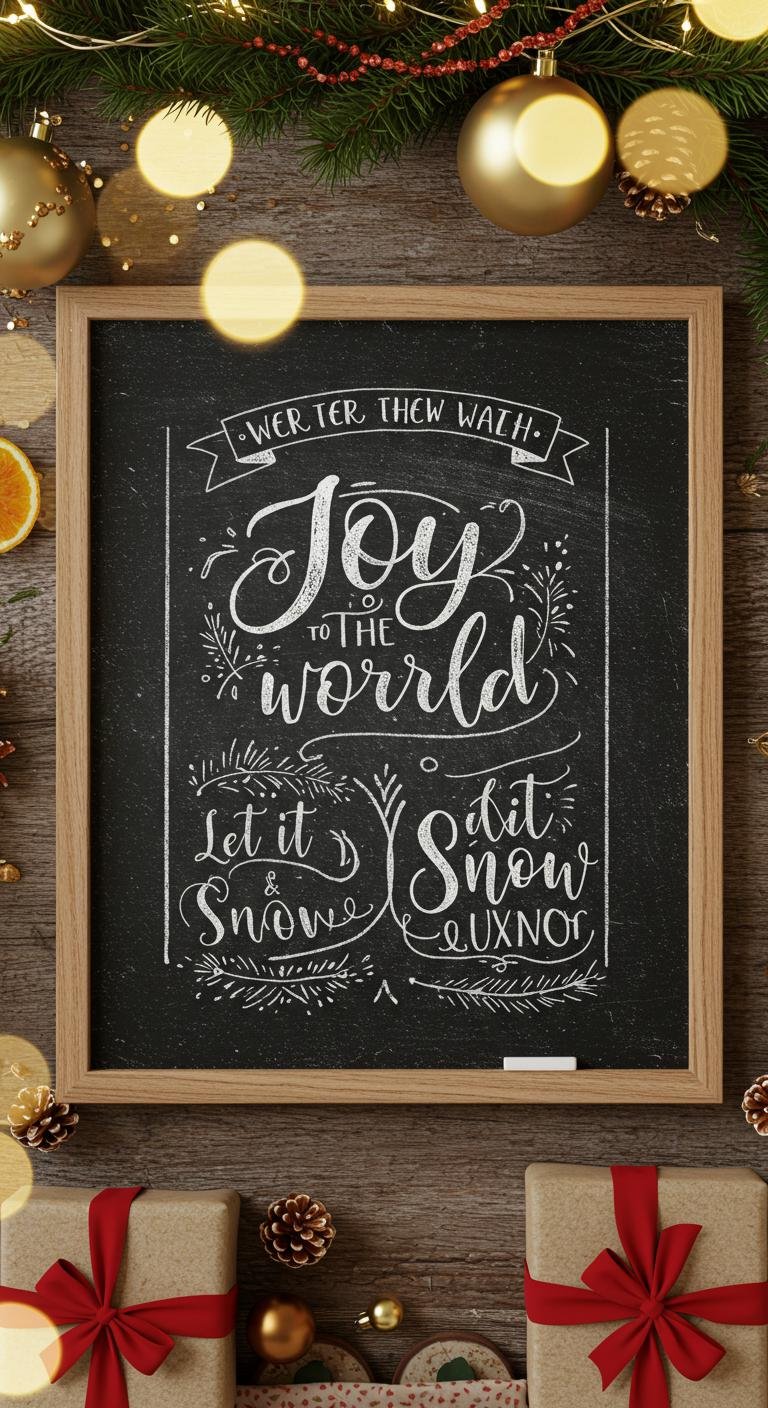 WER TER THEW WATH
Joy
TO THE
worrld
Let it
&
Snow
ibit
Snow
&UXNOr